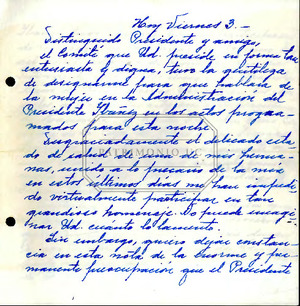 Hoy Viernes 3.-
Distinguido Presidente y amigo,
el Comité que Ud. preside en forma tan
entusiasta y digna, tuvo la gentileza
de designarme para que hablara de
la mujer en la Administración del
Presidente Ibáñez en los actos progra-
mados para esta noche.
Desgraciadamente el delicado esta-
do de salud de una de mis herma-
nas, unido a lo precario de la mía
en estos últimos días me han impedi-
do virtualmente participar en tan
grandioso homenaje. Ud. puede imagi-
nar Ud. cuánto lo lamento.
Sin embargo, quiero dejar constan-
cia en esta nota de la enorme y per-
manente preocupación que el Presidente
PATRIMONIO